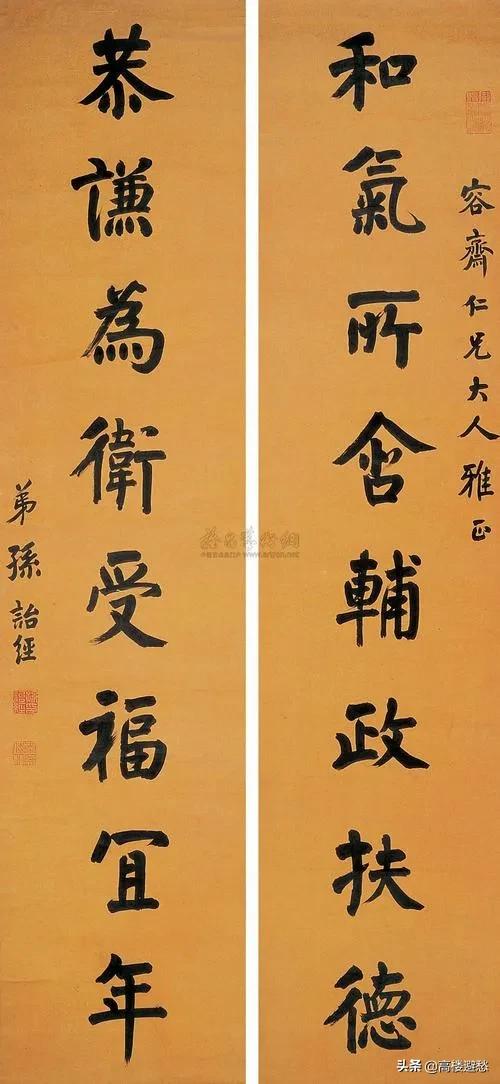 容齋仁兄大人雅正
和氣所舍輔政扶德
恭謙為衛受福宜年
弟孫詒經
头条 @高楼避愁